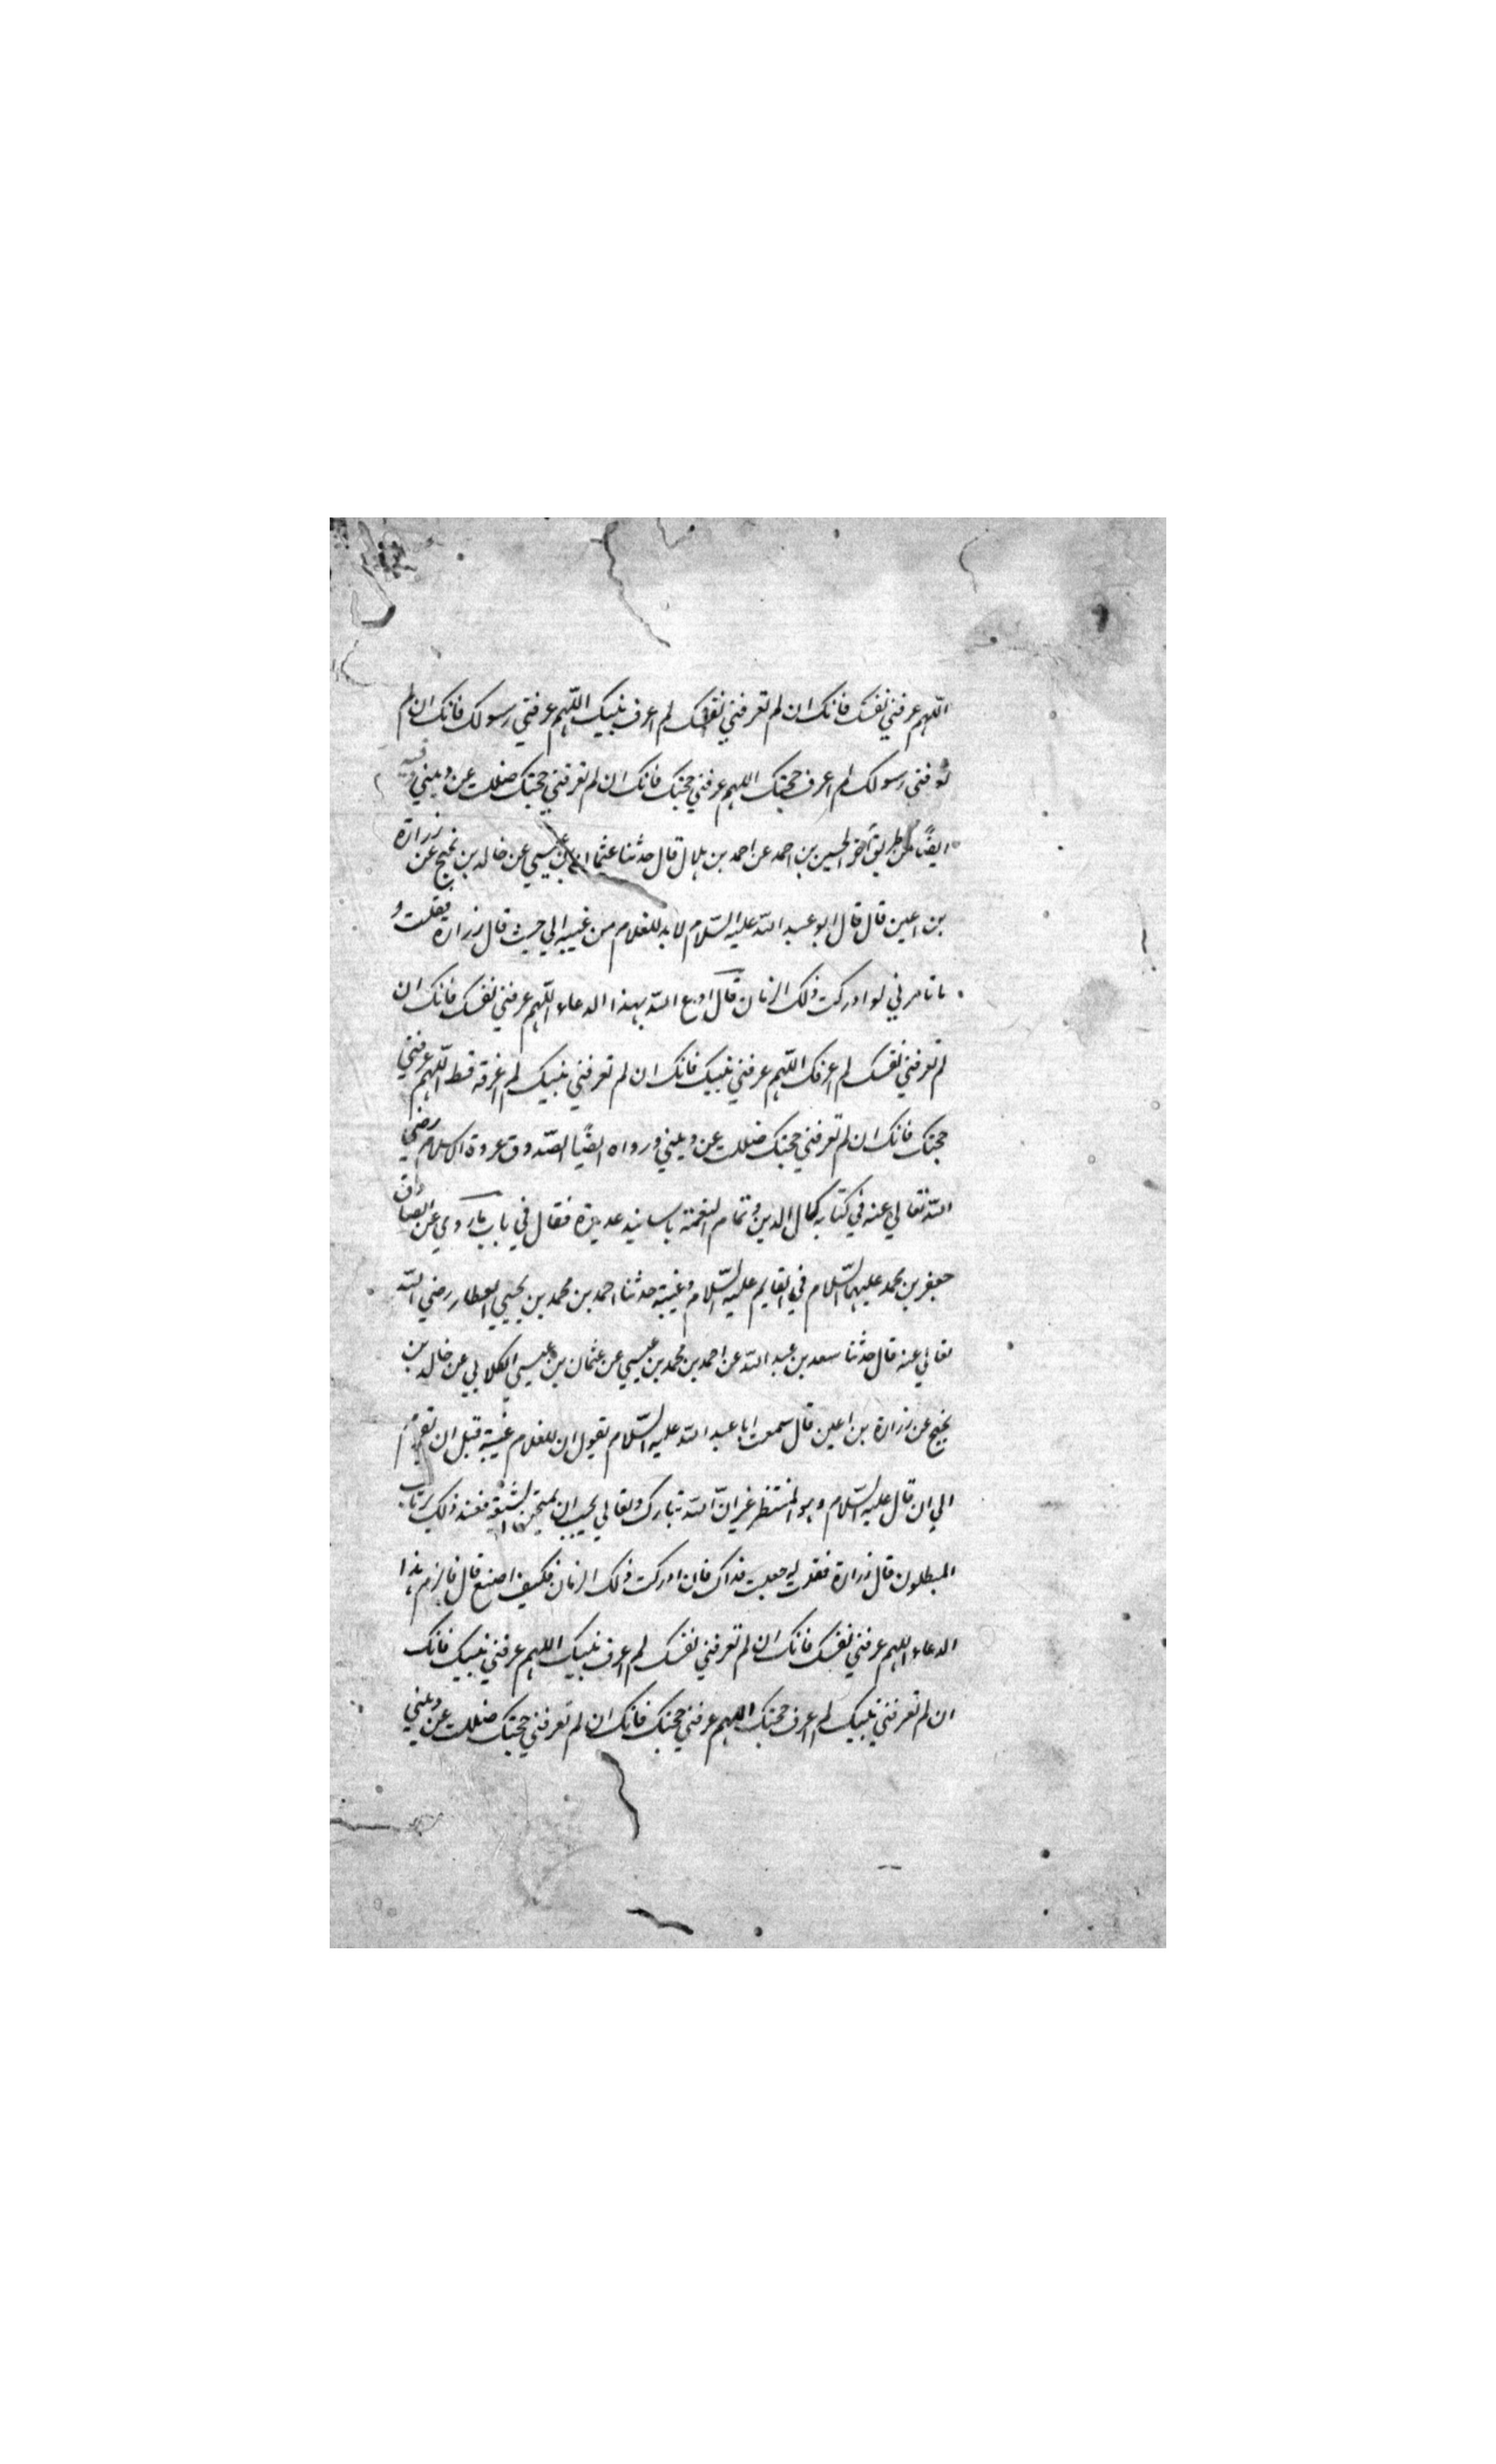 اللّهم عرفني نفسك فانك ان لم تعرفني نفسك لم اعرف نبيك اللّهم عرفني رسولك فانك ان لم
تعرفني رسولك لم اعرف حجتك اللهم عرفني حجتك فانك ان لم تعرفني حجتك ضللت عن ديني وفيه
ايضًا من طريق آخر الحسين بن احمد عن احمد بن هلال قال حدثنا عثمان بن عيسي عن خالد بن نجيح عن زرارة
بن اعين قال قال ابو عبد اللّه عليه السّلام لابد للغلام من غيبة الي حيث قال زرارة فقلت و
ما تامرني لو ادركت ذلك الزمان قال ادع اللّه بهذا الدعاء اللّهم عرفني نفسك فانك ان
لم تعرفني نفسك لم اعرفك اللّهم عرفني نبيك فانك ان لم تعرفني نبيك لم اعرفه قط اللّهم عرفني
حجتك فانك ان لم تعرفني حجتك ضللت عن ديني ورواه ايضًا الصّدوق عروة الاسلام رضي
اللّه تعالي عنه في كتابه كمال الدين وتمام النعمة باسانيد عديدة فقال في باب ما روي عن الصادق
جعفر بن محمد عليهما السّلام في القايم عليه السّلام وغيبته حدثنا احمد بن محمد بن يحيي العطار رضي اللّه
تعالي عنه قال حدثنا سعد بن عبد اللّه عن احمد بن محمد بن عيسي عن عثمان بن عيسي الكلابي عن خالد بن
نجيح عن زرارة بن اعين قال سمعت ابا عبد اللّه عليه السّلام يقول ان للغلام غيبة قبل ان يقوم
الي ان قال عليه السّلام وهو المنتظر غير انّ اللّه تبارك وتعالي يحب ان يمتحن الشيعة فعند ذلك يرتاب
المبطلون قال زرارة فقلت له جعلت فداك فان ادركت ذلك الزمان فكيف اصنع قال فالزم هذا
الدعاء اللهم عرفني نفسك فانك ان لم تعرفني نفسك لم اعرف نبيك اللهم عرفني نبيك فانك
ان لم تعرفني نبيك لم اعرف حجتك اللهم عرفني حجتك فانك ان لم تعرفني حجتك ضللت عن ديني